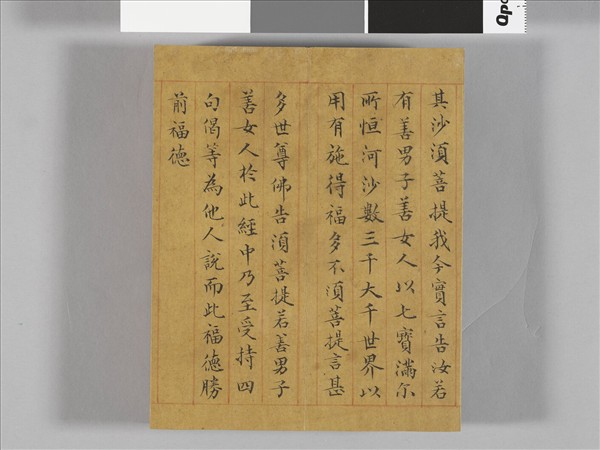 其沙須菩提我今實言告汝若
有善男子善女人以七寶滿尓
所恒河沙數三千大千世界以
用有施得福多不須菩提言甚
多世尊佛告須菩提若善男子
善女人於此經中乃至受持四
句偈等為他人說而此福德勝
前福德